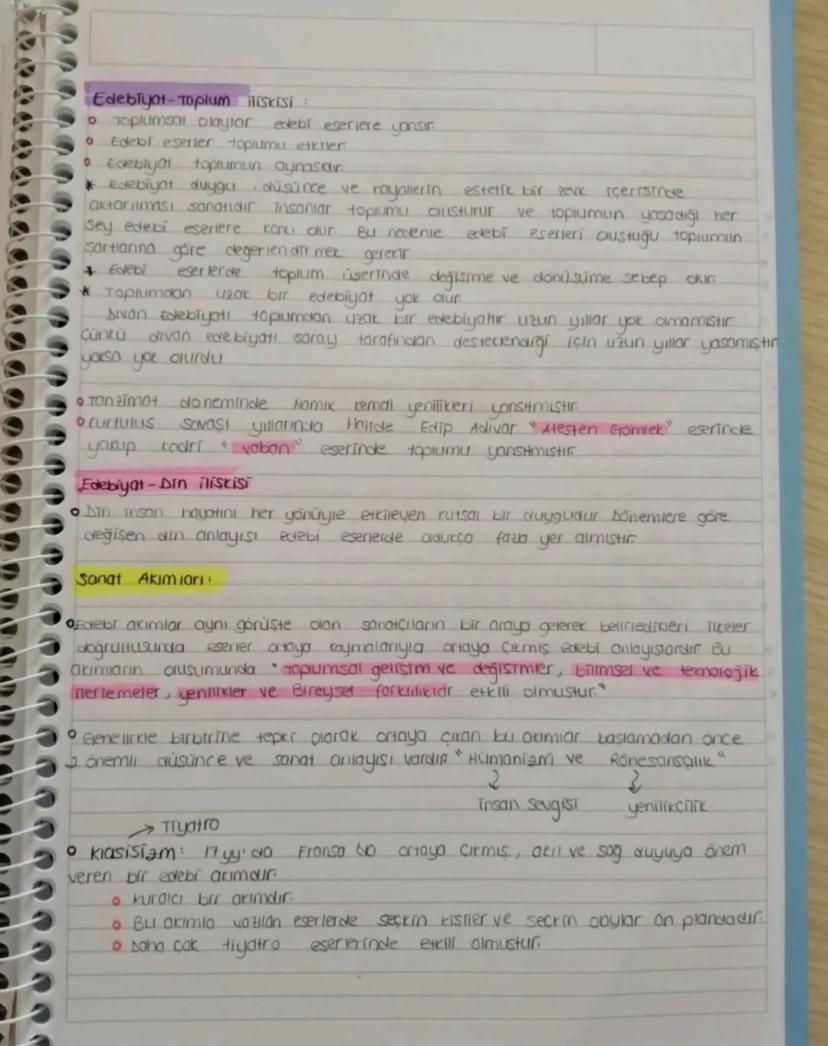 Edebiyat-Toplum İlişkisi :
o Toplumsal olaylar edebi eserlere yansır.
o Edebi eserler toplumu etkiler.
o Edebiyat toplumun aynasıdır.
* Edebiyat duygu, düşünce ve hayallerin estetik bir zevk içerisinde
aktarılması sanatıdır. İnsanlar toplumu oluşturur ve toplumun yaşadığı her
şey edebi eserlere konu olur. Bu nedenle edebi eserleri oluştuğu toplumun
şartlarına göre değerlendirmek gerekir.
* Edebi eserlerde toplum üserinde değişime ve dönüşüme sebep olur.
* Toplumdan uzak bir edebiyat yok olur.
Divan Edebiyatı toplumdan uzak bir edebiyattır uzun yıllar yok olmamıştır
Çünkü divan edebiyatı saray tarafından desteklendiği için uzun yıllar yaşamıştır
yoksa yok olurdu
o Tanzimat döneminde Namık Kemal yenilikleri yansıtmıştır.
o Kurtuluş savaşı yıllarında Halide Edip Adıvar "Ateşten Gömlek" eserinde
yakup kadri "yaban" eserinde toplumu yansıtmıştır.
Edebiyat-Din ilişkisi
o Din insan hayatını her yönüyle etkileyen kutsal bir duygudur. Dönemlere göre
değişen din anlayışı edebi eserlerde oldukça fazla yer almıştır.
Sanat Akımları:
o Edebi akımlar aynı görüşte olan sanatçıların bir araya gelerek belirledikleri ilkeler
doğrultusunda eserler ortaya koymalarıyla ortaya çıkmış edebi anlayışlardır. Bu
akımların oluşumunda "Toplumsal gelişim ve değişimler, bilimsel ve teknolojik
ilerlemeler, yenilikler ve Bireysel farklılıklar etkili olmuştur."
o Genellikle birbirine tepki olarak ortaya çıkan bu akımlar başlamadan önce
2 önemli düşünce ve sanat anlayışı vardır "Hümanizm ve Rönesansçılık"
insan sevgisi yenilikçilik
→ Tiyatro
o Klasisizm: 17.yy.'da Fransa'da ortaya çıkmış, akıl ve sağ duyuya önem
veren bir edebi akımdır.
o Kuralcı bir akımdır.
o Bu akımla yazılan eserlerde seçkin kişiler ve seçkin olaylar ön plandadır.
o Daha çok tiyatro eserlerinde etkili olmuştur.